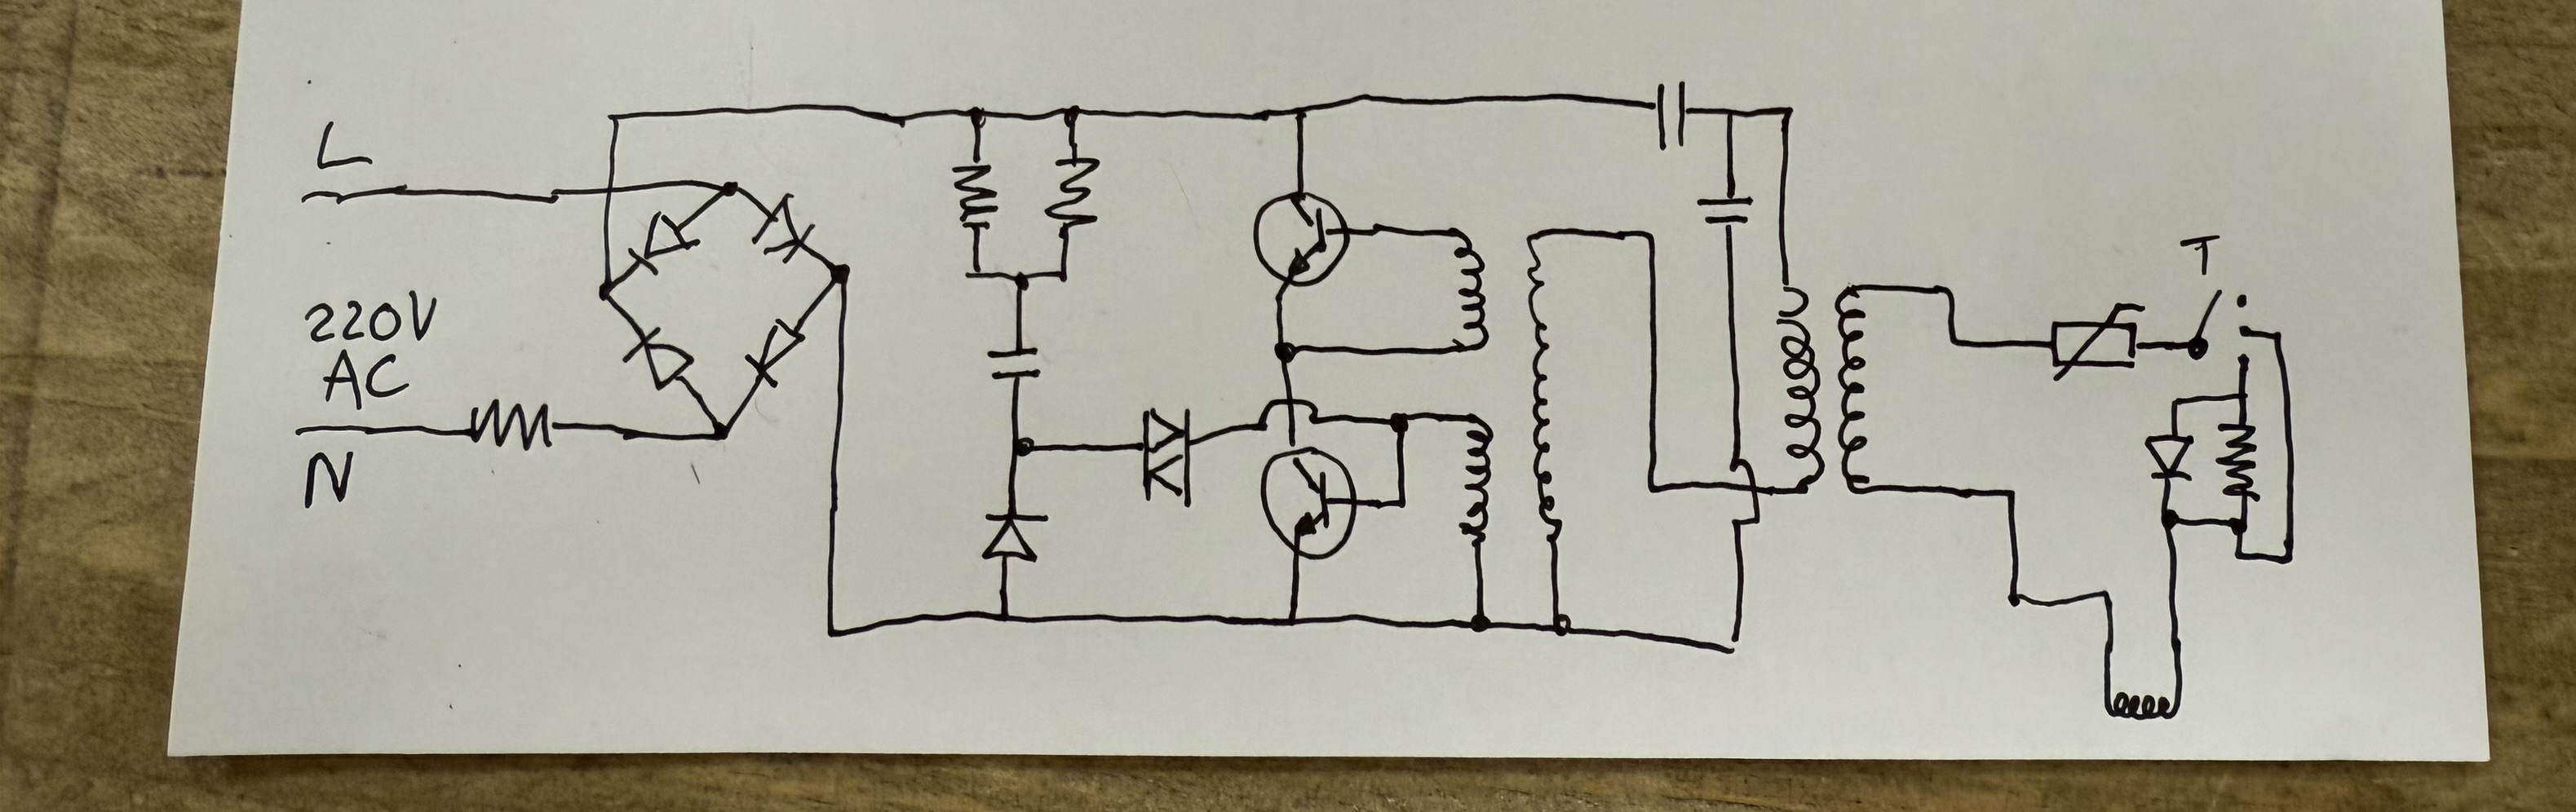 L
220V
AC
N
T